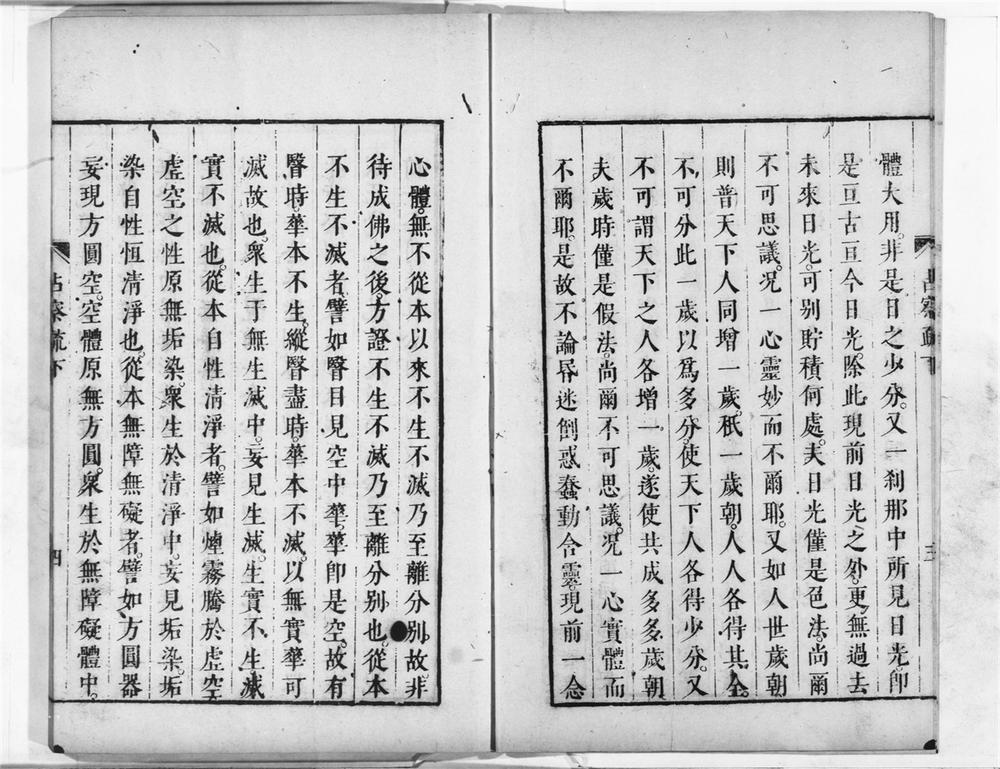 體大用。非是日之少分。又一刹那中所見日光。卽
是亘古亘今日光。除此現前日光之外。更無過去
未來日光。可別貯積何處。夫日光僅是色法。尚爾
不可思議。況一心靈妙而不爾耶。又如人世歲朝
則普天下人同增一歲。秖一歲朝。人人各得其全。
不可分此一歲以爲多分。使天下人各得少分。又
不可謂天下之人各增一歲。遂使共成多多歲朝
夫歲時僅是假法。尚爾不可思議。況一心實體而
不爾耶。是故不論昏迷倒惑蠢動含靈。現前一念
占察疏下
三
心體。無不從本以來不生不滅乃至離分別。故非
待成佛之後。方證不生不滅乃至離分別也。從本
不生不滅者。譬如瞖目見空中華。華卽是空。故有
瞖時。華本不生。縱瞖盡時。華本不滅。以無實華可
滅故也。衆生于無生滅中。妄見生滅。生實不生。滅
實不滅也。從本自性清淨者。譬如煙霧騰於虛空
虛空之性原無垢染。衆生於清淨中。妄見垢染。垢
染自性恒清淨也。從本無障無礙者。譬如方圓器
妄現方圓空。空體原無方圓。衆生於無障礙體中。
占察疏下
四